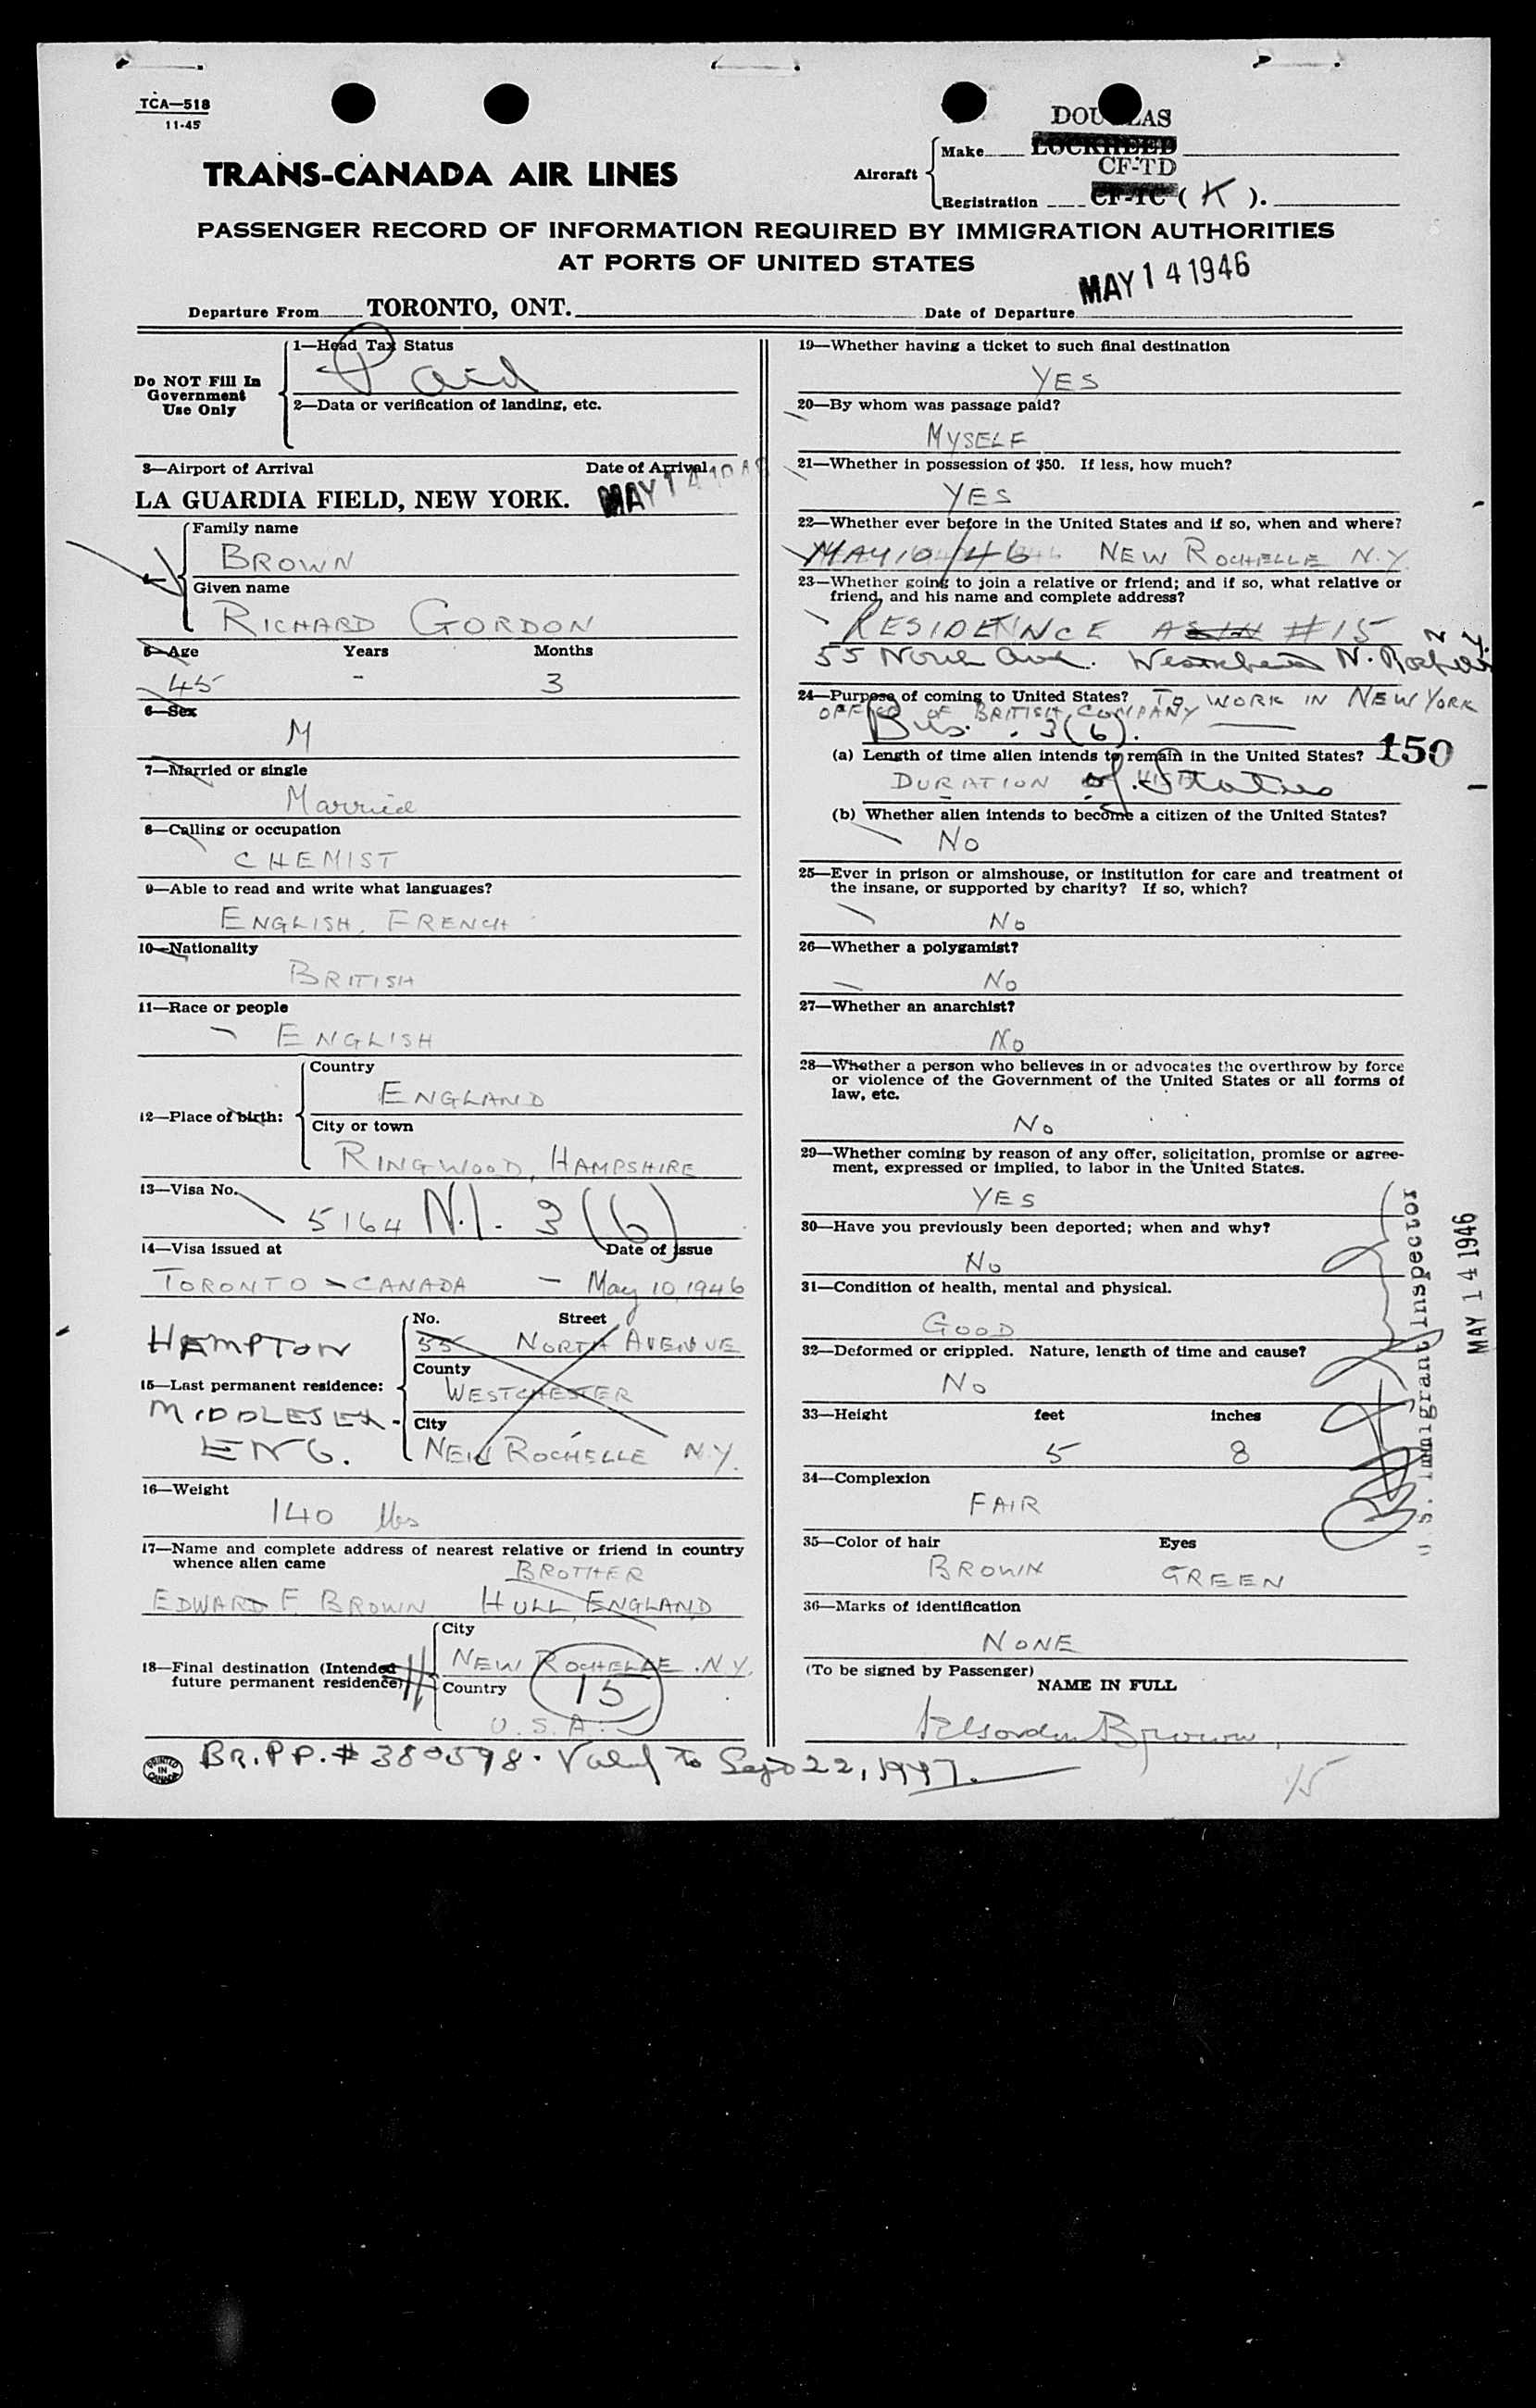 TCA—518
11-45
DOUGLAS
Aircraft
Make LOCKHEED
CF-TD
Registration CF-TC ( K ).
TRANS-CANADA AIR LINES
PASSENGER RECORD OF INFORMATION REQUIRED BY IMMIGRATION AUTHORITIES
AT PORTS OF UNITED STATES
MAY 14 1946
Departure From TORONTO, ONT. Date of Departure
Do NOT Fill In
Government
Use Only
1—Head Tax Status
Paid
2—Data or verification of landing, etc.
3—Airport of Arrival Date of Arrival
LA GUARDIA FIELD, NEW YORK. MAY 14
Family name
BROWN
Given name
RICHARD GORDON
5—Age Years Months
45 - 3
6—Sex
M
7—Married or single
Married
8—Calling or occupation
CHEMIST
9—Able to read and write what languages?
ENGLISH, FRENCH
10—Nationality
BRITISH
11—Race or people
ENGLISH
12—Place of birth:
Country
ENGLAND
City or town
RINGWOOD, HAMPSHIRE
13—Visa No.
5164 N.I. 3(6)
14—Visa issued at Date of issue
TORONTO – CANADA – May 10, 1946
HAMPTON
15—Last permanent residence:
MIDDLESEX -
ENG.
No. Street
55 NORTH AVENUE
County
WESTCHESTER
City
NEW ROCHELLE N.Y.
16—Weight
140 lbs
17—Name and complete address of nearest relative or friend in country
whence alien came
BROTHER
EDWARD F. BROWN HULL, ENGLAND
18—Final destination (Intended
future permanent residence)
City
NEW ROCHELLE . N.Y.
Country
15
U.S.A.
PRINTED
IN
CANADA
BR. P.P. # 380598. Valid to Sept 22, 1947.
19—Whether having a ticket to such final destination
YES
20—By whom was passage paid?
MYSELF
21—Whether in possession of $50. If less, how much?
YES
22—Whether ever before in the United States and if so, when and where?
MAY 10/46 NEW ROCHELLE N.Y.
23—Whether going to join a relative or friend; and if so, what relative or
friend, and his name and complete address?
RESIDENCE AS IN #15
55 North Ave. N. N.Y.
24—Purpose of coming to United States? TO WORK IN NEW YORK
OFFICE OF BRITISH COMPANY
Bus. 3(6).
(a) Length of time alien intends to remain in the United States? 150
DURATION of Status
(b) Whether alien intends to become a citizen of the United States?
No
25—Ever in prison or almshouse, or institution for care and treatment of
the insane, or supported by charity? If so, which?
No
26—Whether a polygamist?
No
27—Whether an anarchist?
No
28—Whether a person who believes in or advocates the overthrow by force
or violence of the Government of the United States or all forms of
law, etc.
No
29—Whether coming by reason of any offer, solicitation, promise or agree-
ment, expressed or implied, to labor in the United States.
YES
30—Have you previously been deported; when and why?
No
31—Condition of health, mental and physical.
GOOD
32—Deformed or crippled. Nature, length of time and cause?
No
33—Height feet inches
5 8
34—Complexion
FAIR
35—Color of hair Eyes
BROWN GREEN
36—Marks of identification
NONE
(To be signed by Passenger)
NAME IN FULL
R Gordon Brown
15
U.S. Immigrant Inspector
MAY 14 1946